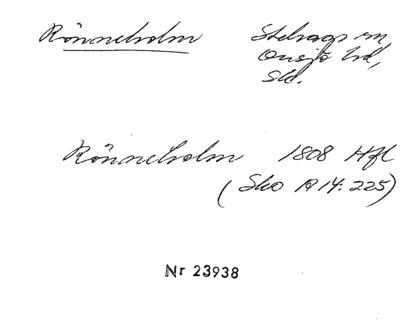 Rönneholm Stehags sn
Onsjö hd,
Skå.
Rönneholm 1808 Hfl
(Sko A 14: 225)
Nr 23938